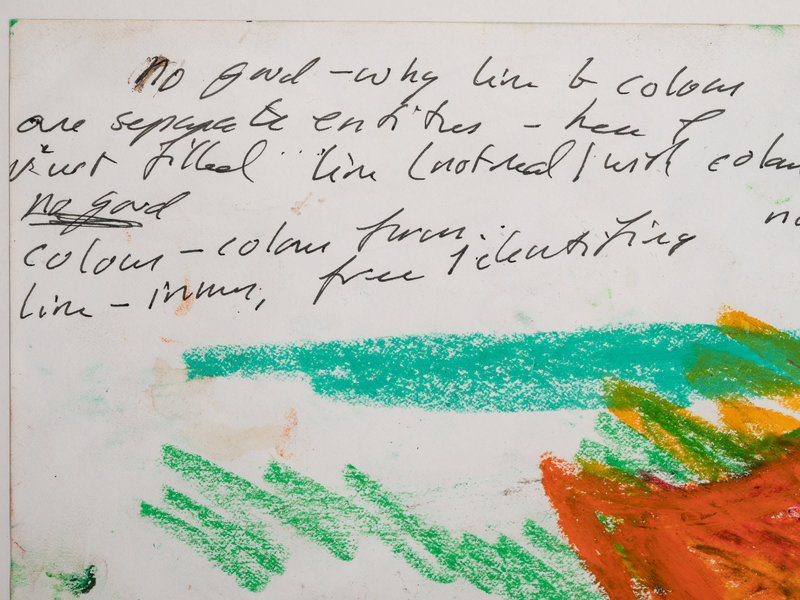 no good - why line & colour
are separate entities - here I
just filled line (not real) with colou
no good
colour - colour form
line - inner, free identifying